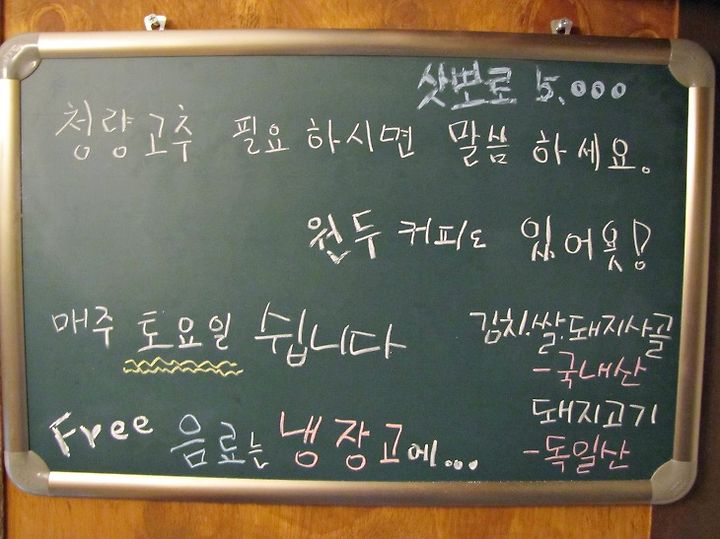 삿뽀로 5.000
청량고추 필요하시면 말씀하세요.
원두커피도 있어욧!
매주 토요일 쉽니다
김치.쌀.돼지사골
-국내산
돼지고기
-독일산
Free 음료는 냉장고에...